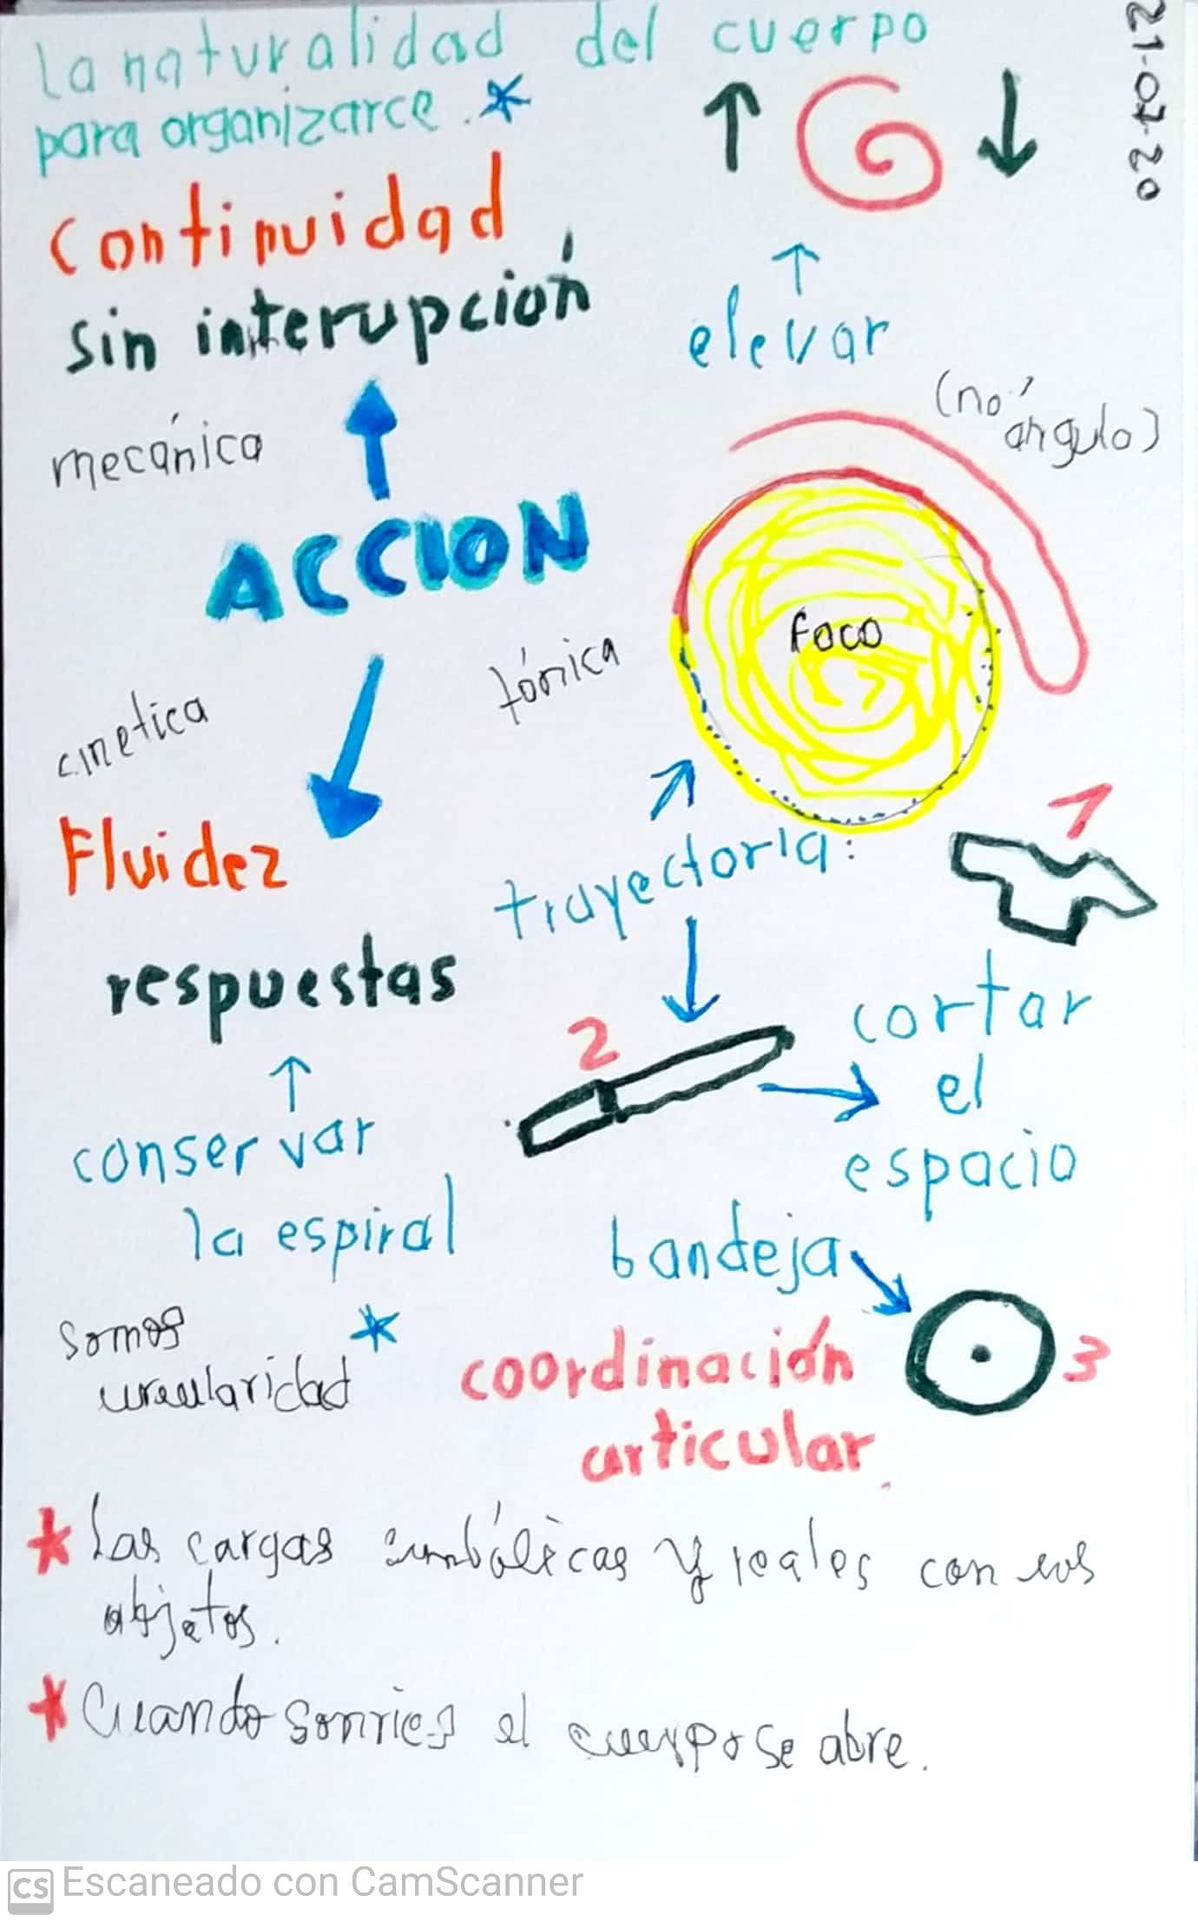 21-07-20
La naturalidad del cuerpo
para organizarce.*
Continuidad
sin interupción
elevar
(no
ángulo)
mecánica
ACCION
Foco
tónica
cinetica
Fluidez
trayectoria:
1
respuestas
2
cortar
el
espacio
conservar
la espiral
bandeja
somos
circularidad
*
coordinación
articular.
3
* Las cargas simbólicas y reales con los
objetos.
* Cuando sonries el cuerpo se abre.
CS Escaneado con CamScanner